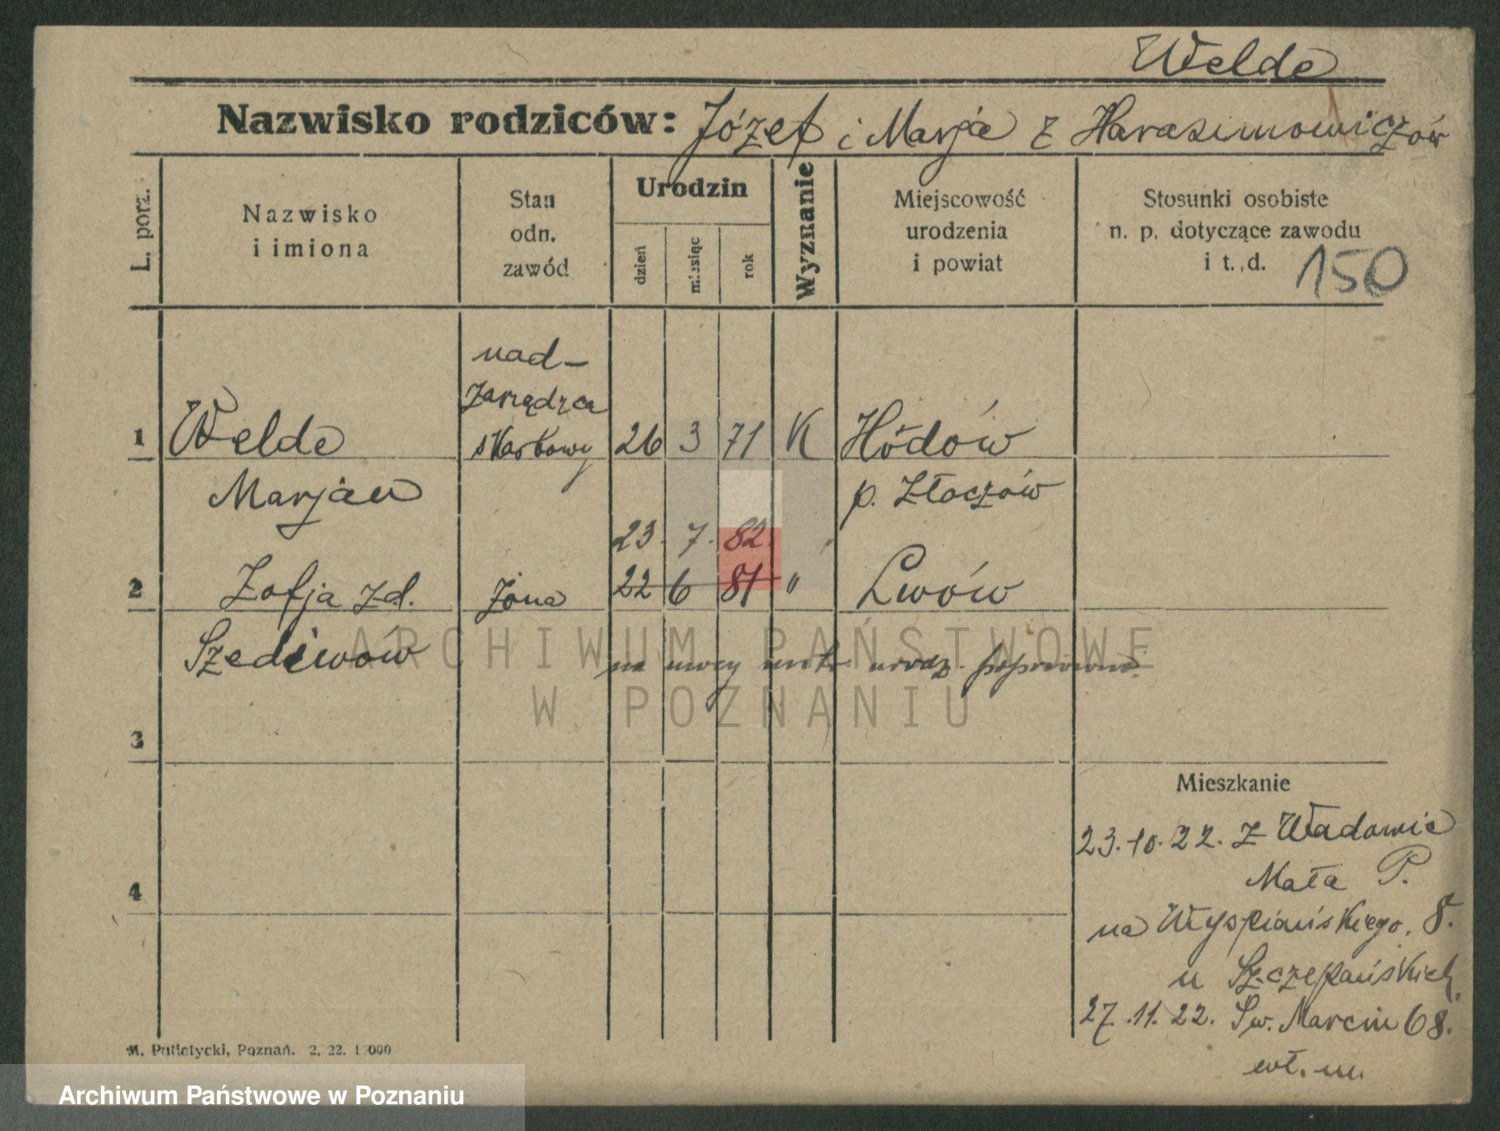 Welde
Nazwisko rodziców: Józef i Marja z Harasimowiczów
L. porz.
Nazwisko
i imiona
Stan
odn.
zawód
Urodzin
dzień
miesiąc
rok
Wyznanie
Miejscowość
urodzenia
i powiat
Stosunki osobiste
n. p. dotyczące zawodu
i t. d.
150
nad-
zarządca
1 Welde skarbowy 26 3 71 K Hodów
Marjan p. Złoczów
23. 7. 82.
2 Zofja zd. żona 22 6 81 " Lwów
Szediwów
na mocy metr. urodz. poprawiono.
3
Mieszkanie
23.10.22. z Wadowic
4
Mała P.
na Wyspiańskiego. 8.
u Szczepańskich
27.11.22. Św. Marcin 68.
wł. m.
M. Putiatycki, Poznań. 2. 22.
ARCHIWUM PAŃSTWOWE
W POZNANIU
Archiwum Państwowe w Poznaniu